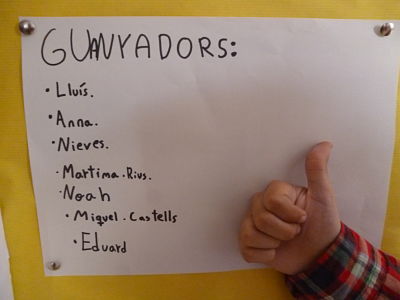 GUANYADORS:
· Lluís.
· Anna.
· Nieves.
· Martima. Rius.
· Noah
· Miquel. Castells
· Eduard